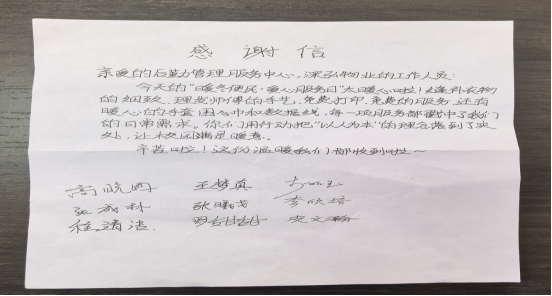 感谢信
亲爱的后勤管理服务中心、深弘物业的工作人员：
今天的“暖冬便民·爱心服务日”太暖心啦！缝补衣物
的细致、理发师傅的手艺、免费打印、免费的服务，还有
暖心的手套围巾和数据线，每一项服务都戳中了我们
的日常需求。你们用行动把“以人为本”的理念落到了实
处，让校园满是暖意。
辛苦啦！这份温暖我们都收到啦～
高晓 王梦真
张成林 张曦 李欣
程靖洁 史文瀚